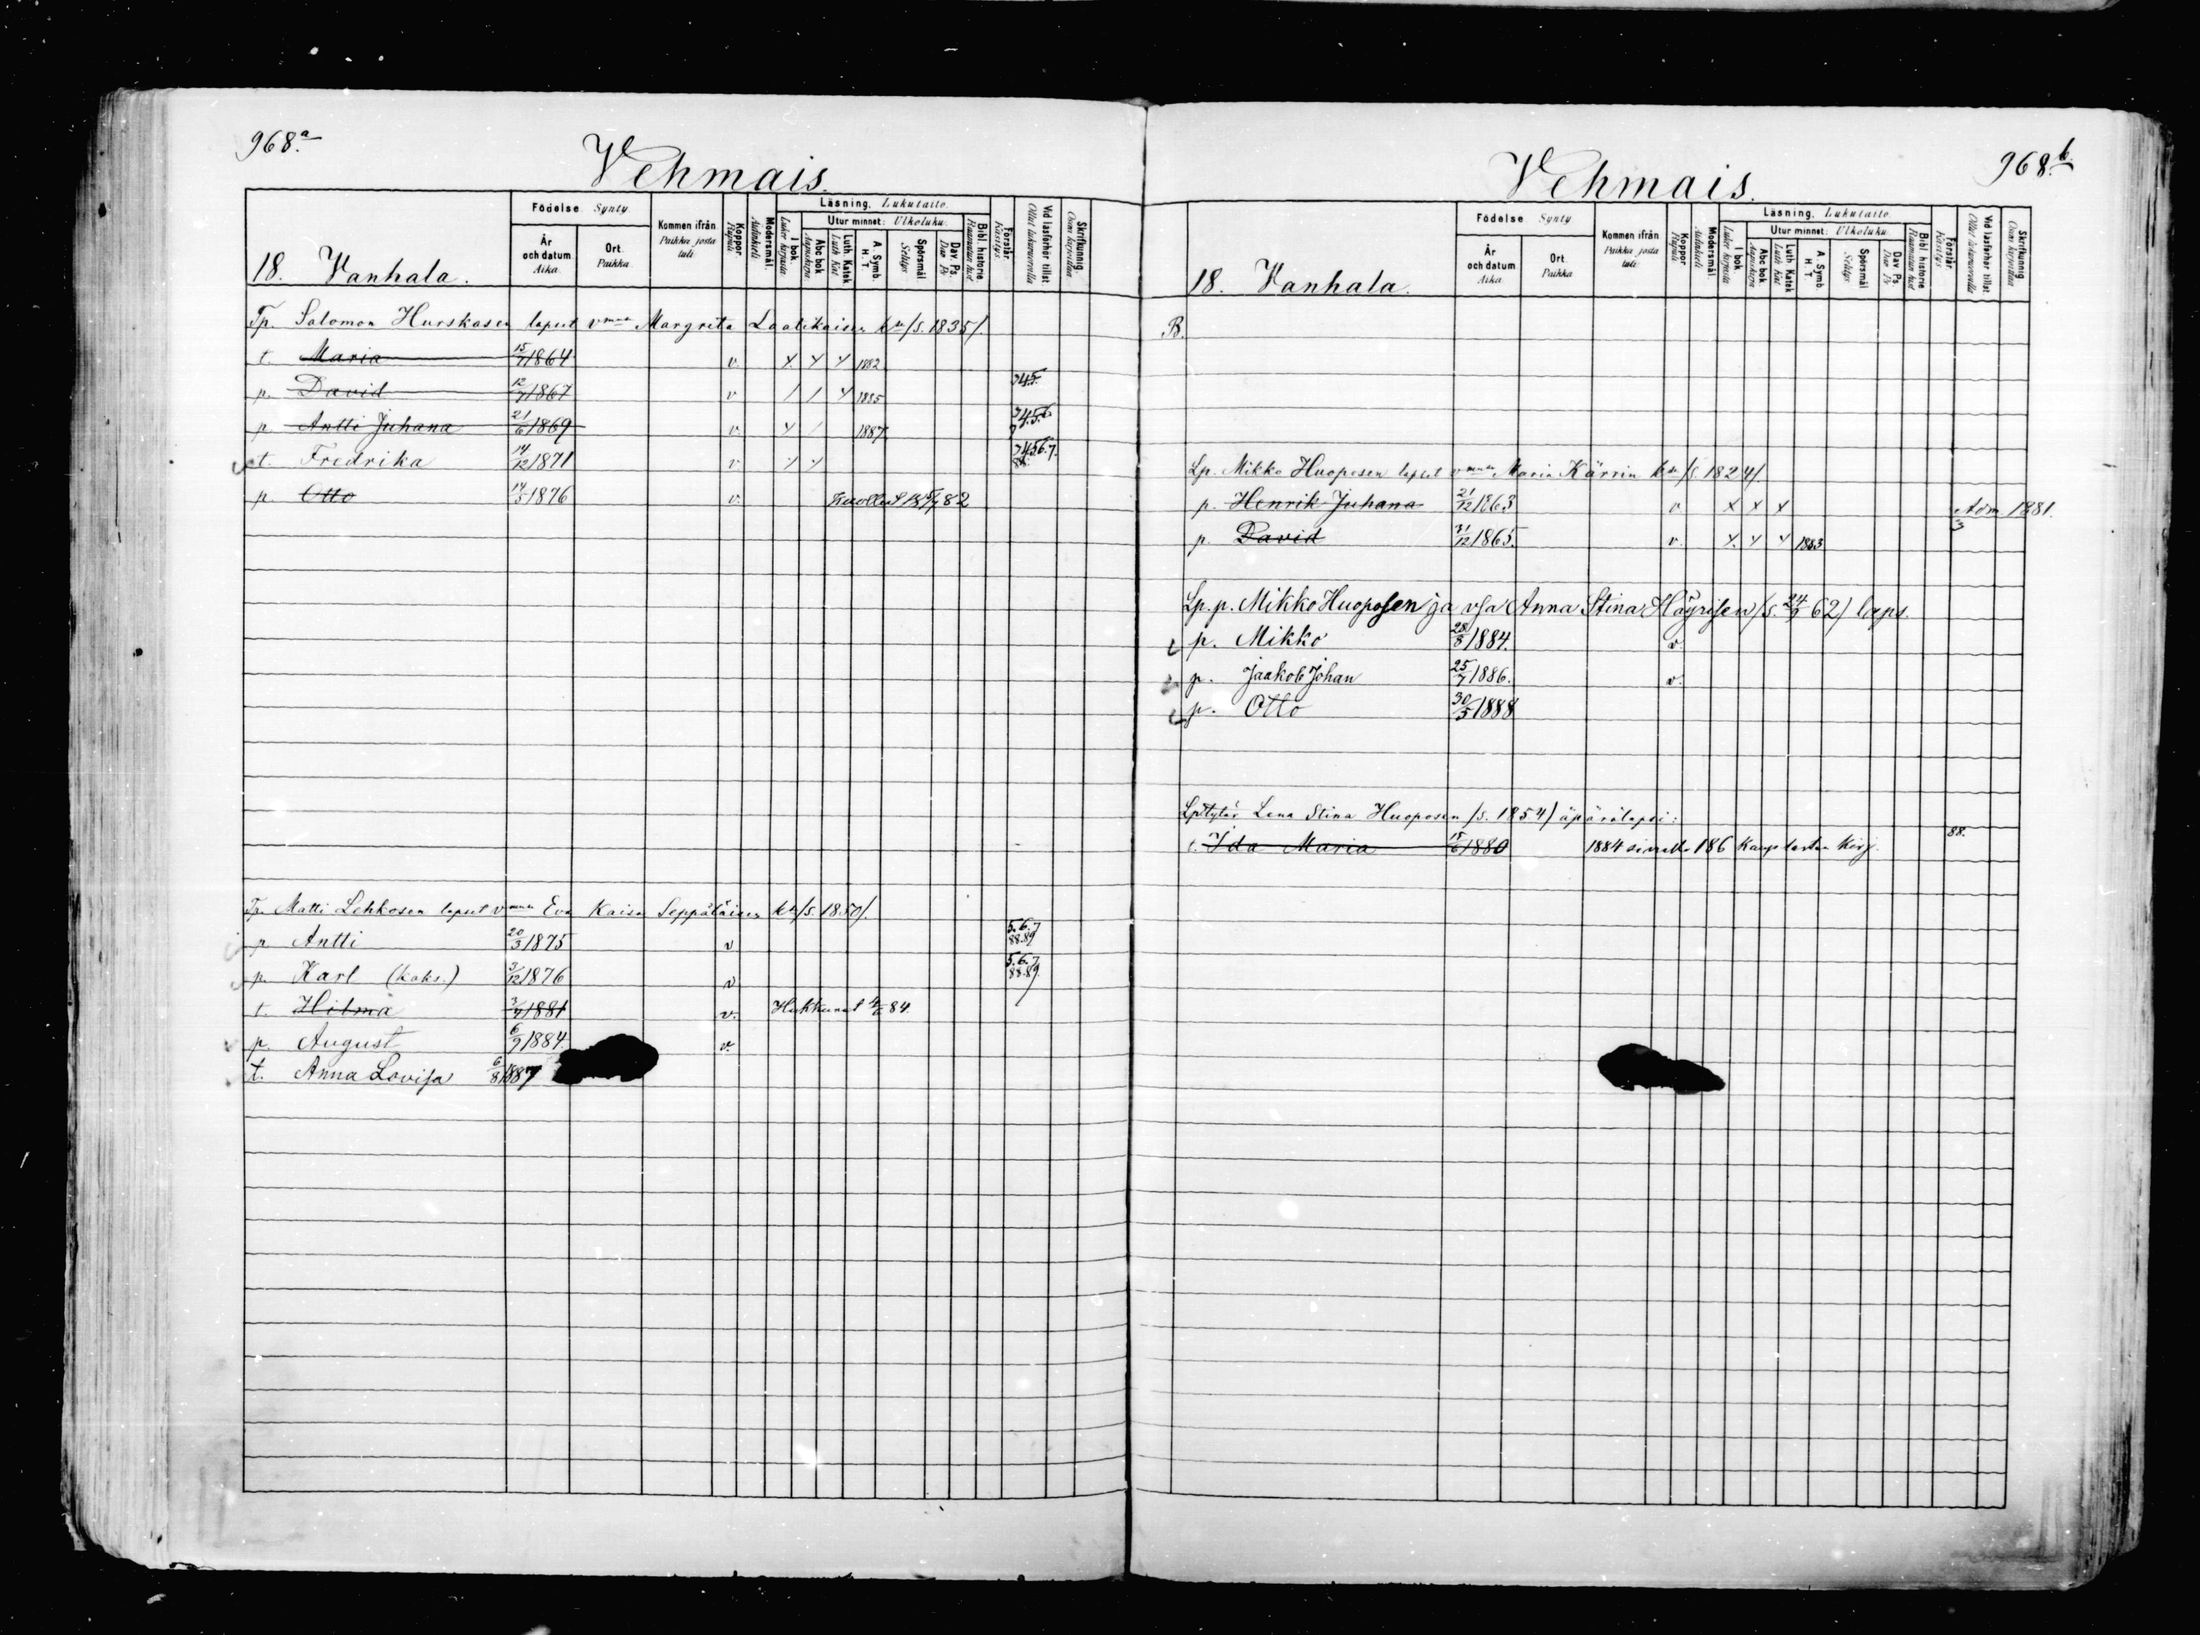 968.a
Vehmais.
18. Vanhala.
Födelse. Synty.
År och datum. Aika.
Ort. Paikka.
Kommen ifrån Paikka josta tuli
Koppor. Rupuli
Modersmål. Äidinkieli
Läsning. Lukutaito.
I bok.
Utur minnet: Ulkoluku.
Abc bok. Aapiskirja.
Luth. Katek. Luth. Kat.
A. Symb. H. T.
Spörsmål. Selitys
Dav. Ps. Dav. Ps.
Bibl. historie
Förstår. Käsitys.
Vid läsförhör tillst.
Skrifkunnig.
Tp. Salomon Hurskasen lapset vmnsa Margreta Laatikaisen ksa /s. 1835/.
t. Maria 15/7 1864 v. 1882
p. David 12/7 1867 v 1885 345.
p. Antti Juhana 21/6 1869 v. 1887
t. Fredrika 14/12 1871 v.
p. Otto 14/5 1876 v. 82
Tp. Matti Lehkosen lapset vmnsa Eva Kaisa Seppäläisen ksa /s. 1850/.
p Antti 20/3 1875 v 5.6.7 88.89
p. Karl (kaks.) 3/12 1876 v 5.6.7 88.89.
t. Hilma 3/4 1881 v. Hukkunut 4/6 84.
p. August 6/9 1884. v.
t. Anna Lovisa 6/8 1887
968.b
Vehmais.
18. Vanhala.
Födelse Synty
År och datum Aika
Ort. Paikka
Kommen ifrån Paikka josta tuli
Koppor Rupuli
Modersmål. Äidinkieli
Läsning. Lukutaito.
I bok
Utur minnet: Ulkoluku.
Abc bok. Aapiskirja
Luth. Katek Luth. Kat
A. Symb. H. T
Spörsmål Selitys
Dav. Ps Dav. Ps
Bibl. historie
Förstår. Käsitys
Vid läsförhör tillst.
Skrifkunnig
B.
Lp. Mikko Huoposen lapset vmnsa Maria Kärrin ksa /s. 1824/.
p. Henrik Juhana 21/12 1863 v x x x Adm. 1881.
p. David 31/12 1865. v. 1883
Lp. p. Mikko Huoposen ja vsa Anna Stina Häyrisen /s. 24/9 62/ laps.
p. Mikko 28/8 1884. v.
p. Jaakob Johan 25/7 1886. v.
p. Otto 30/5 1888
Lp. tytär Lena Stina Huoposen /s. 1854/ äpärälapsi:
t. Ida Maria 15/6 1880 1884 186 Kirj. 88.